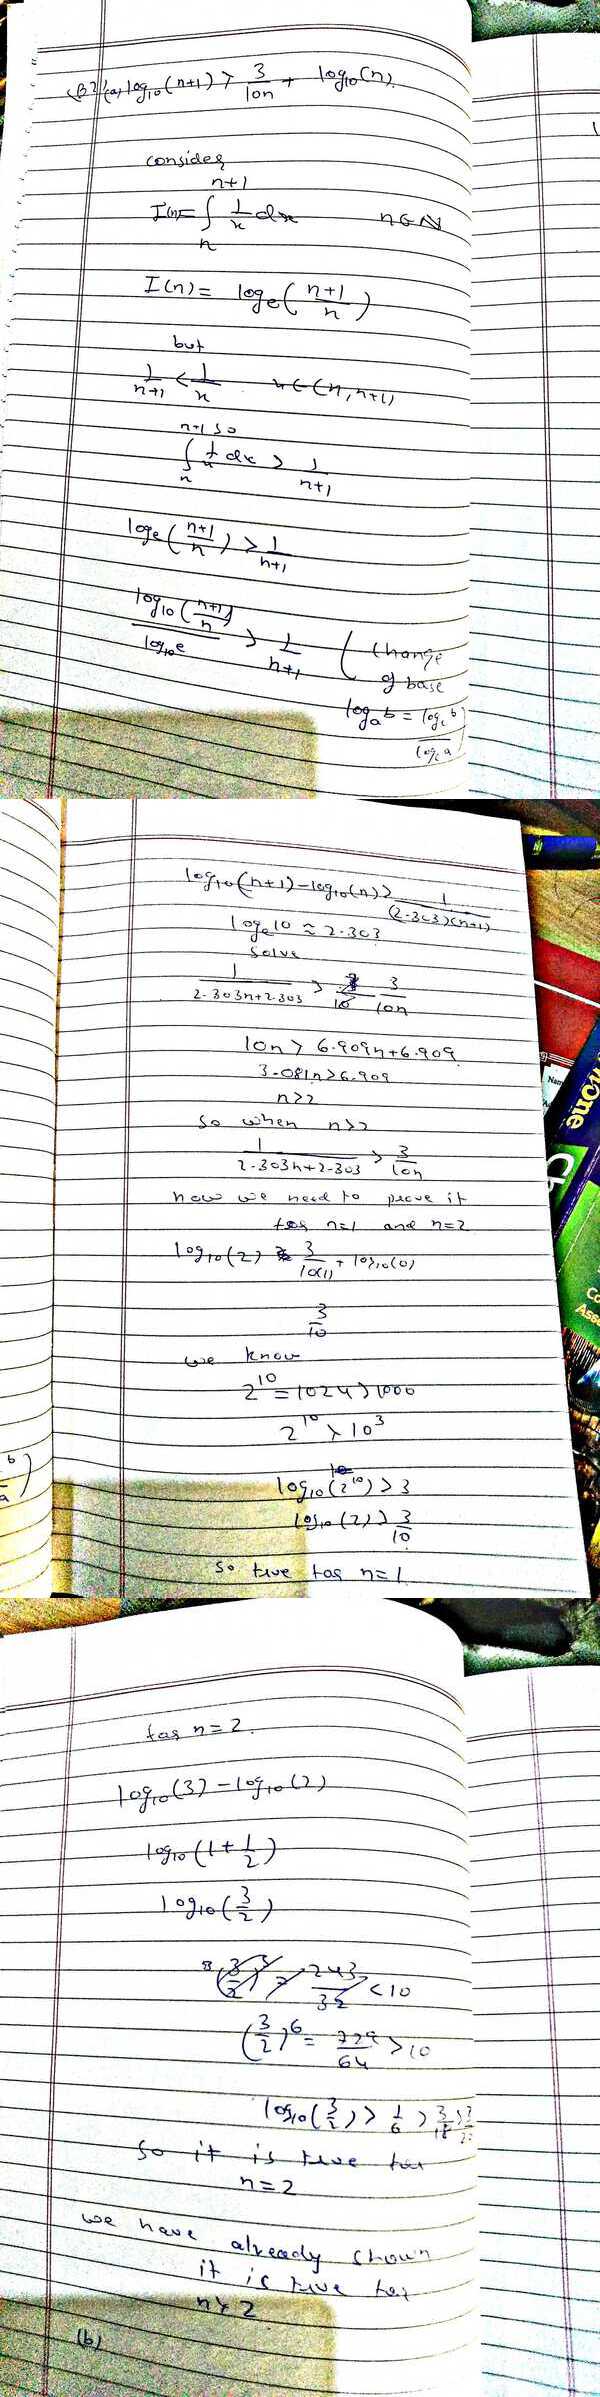 B2) (a) log₁₀(n+1) > 3/10n + log₁₀(n).
consider
I(n) = ∫ₙⁿ⁺¹ 1/x dx n∈ℕ
I(n) = logₑ((n+1)/n)
but
1/(n+1) < 1/x x ∈ (n, n+1)
so
∫ₙⁿ⁺¹ 1/x dx > 1/(n+1)
logₑ((n+1)/n) > 1/(n+1)
log₁₀((n+1)/n)/log₁₀e > 1/(n+1) (change
of base
logₐb = log_c b/log_c a)
log₁₀(n+1) - log₁₀(n) > 1/((2.303)(n+1))
logₑ10 ≈ 2.303
solve
1/(2.303n+2.303) > 3/10n
10n > 6.909n+6.909
3.081n>6.909
n>2
so when n>2
1/(2.303n+2.303) > 3/10n
now we need to prove it
for n=1 and n=2
log₁₀(2) 3/10(1) + log₁₀(0)
3/10
we know
2¹⁰ = 1024 > 1000
2¹⁰ > 10³
log₁₀(2¹⁰) > 3
log₁₀(2) > 3/10
so true for n=1
for n=2.
log₁₀(3) - log₁₀(2)
log₁₀(1+1/2)
log₁₀(3/2)
243/32 < 10
(3/2)⁶ = 729/64 > 10
log₁₀(3/2) > 1/6 > 3/18 > 3/20
so it is true for
n=2
we have already shown
it is true for
n>2
(b)
b/a)
Nam
one
Ch
Co
Asse